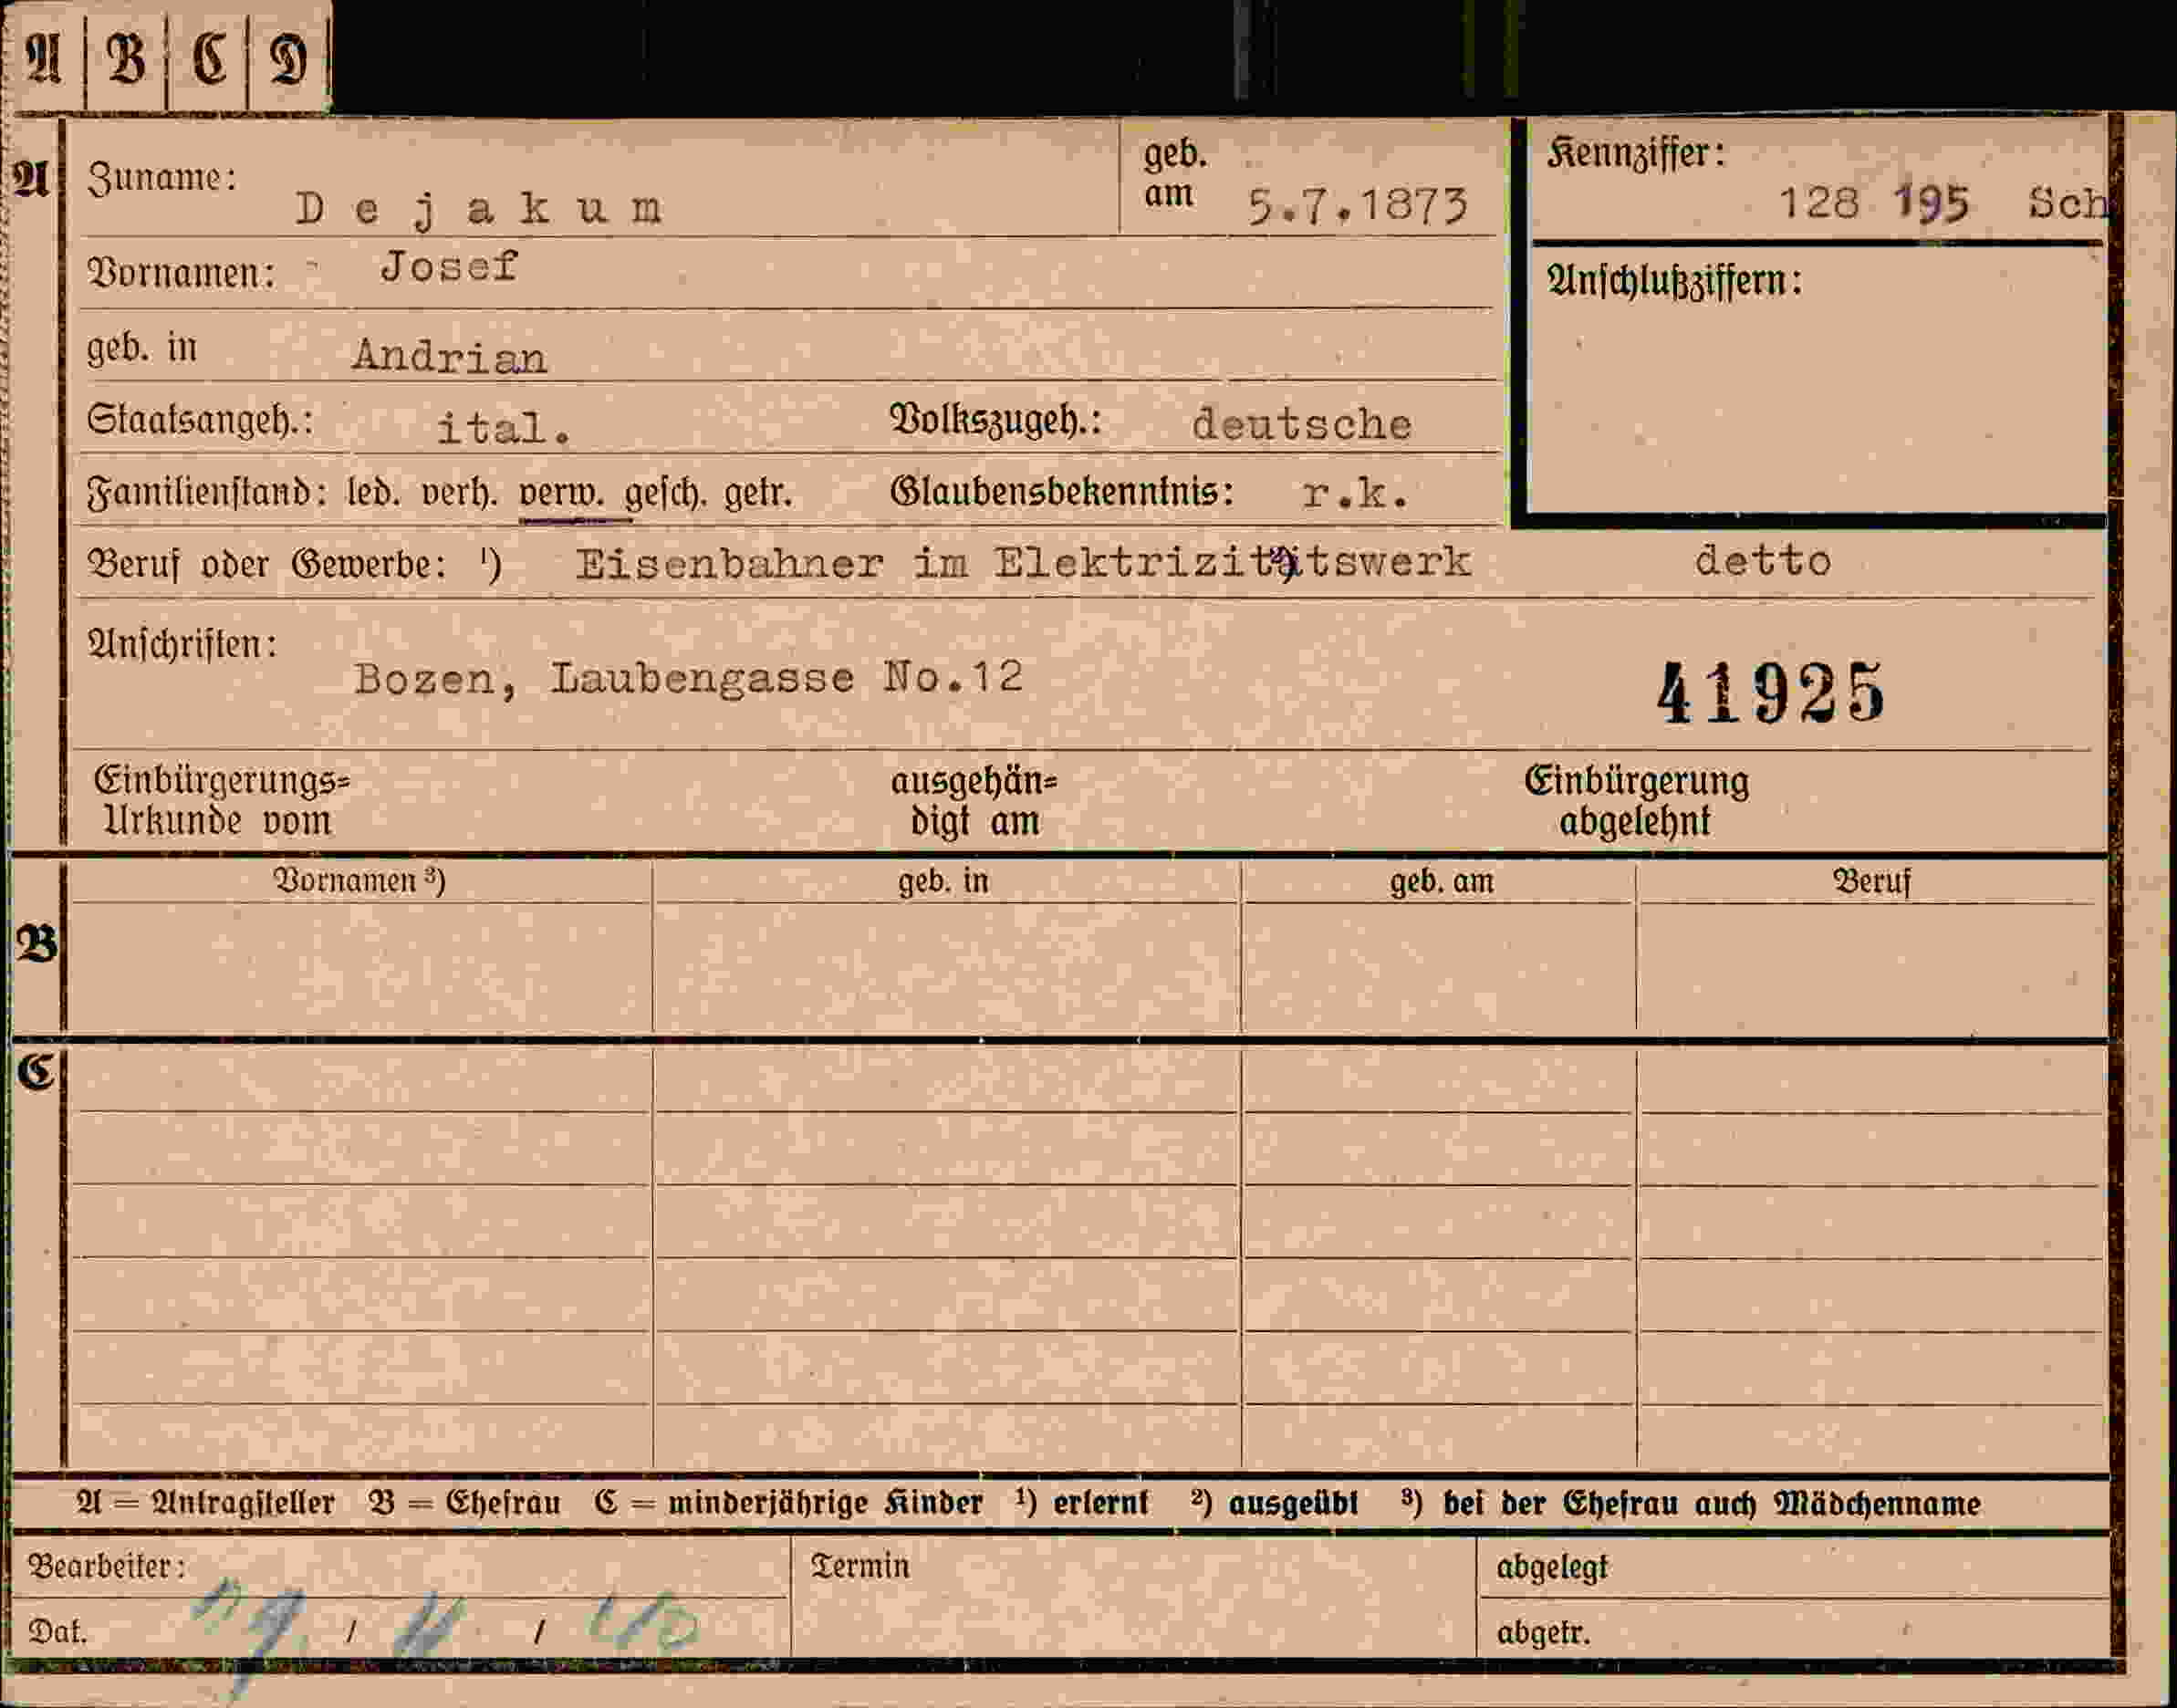 A | B | C | D
A Zuname: Dejakum geb. am 5.7.1873 Kennziffer: 128 195 Sch
Vornamen: Josef Anschlußziffern:
geb. in Andrian
Staatsangeh.: ital. Volkszugeh.: deutsche
Familienstand: led. verh. verw. gesch. getr. Glaubensbekenntnis: r.k.
Beruf oder Gewerbe: ¹) Eisenbahner im Elektrizitätswerk detto
Anschriften: Bozen, Laubengasse No.12 41925
Einbürgerungs= ausgehän= Einbürgerung
Urkunde vom digt am abgelehnt
B Vornamen ³) geb. in geb. am Beruf
C
A = Antragsteller B = Ehefrau C = minderjährige Kinder ¹) erlernt ²) ausgeübt ³) bei der Ehefrau auch Mädchenname
Bearbeiter: Termin abgelegt
Dat. / / 40 abgetr.